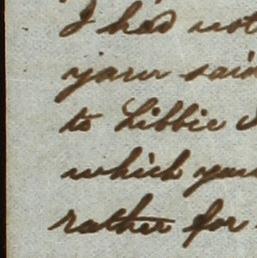 I had not
your said
to Libbie
which you
rather for